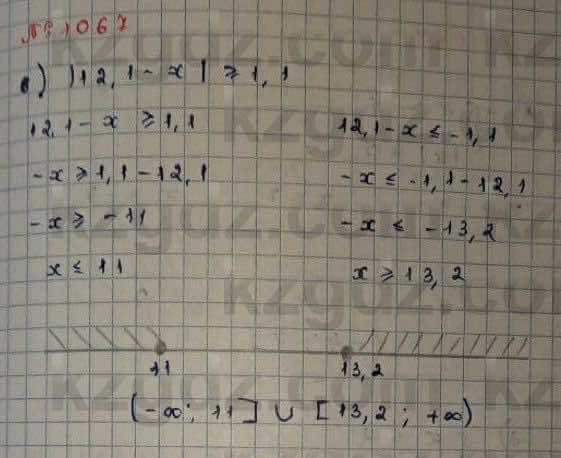 № 1067
в) |12,1 - x| ≥ 1,1
12,1 - x ≥ 1,1   12,1 - x ≤ -1,1
-x ≥ 1,1 - 12,1   -x ≤ -1,1 - 12,1
-x ≥ -11   -x ≤ -13,2
x ≤ 11   x ≥ 13,2
11   13,2
(-∞; 11] ∪ [13,2; +∞)
kzgdz.com